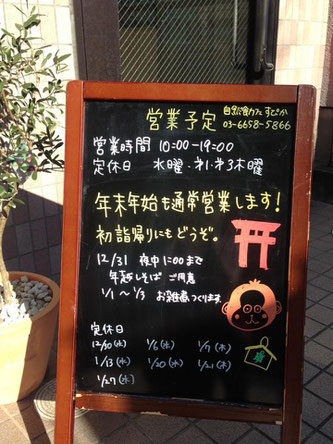 営業予定
自然食カフェ すぴか
03-6658-5866
営業時間 10:00-19:00
定休日 水曜・才1・才3木曜
年末年始も通常営業します!
初詣帰りにもどうぞ。
12/31 夜中1:00まで
年越しそば ご用意
1/1〜1/3 お雑煮つくります。
定休日
12/30(水) 1/6(水) 1/7(木)
1/13(水) 1/20(水) 1/21(木)
1/27(水)